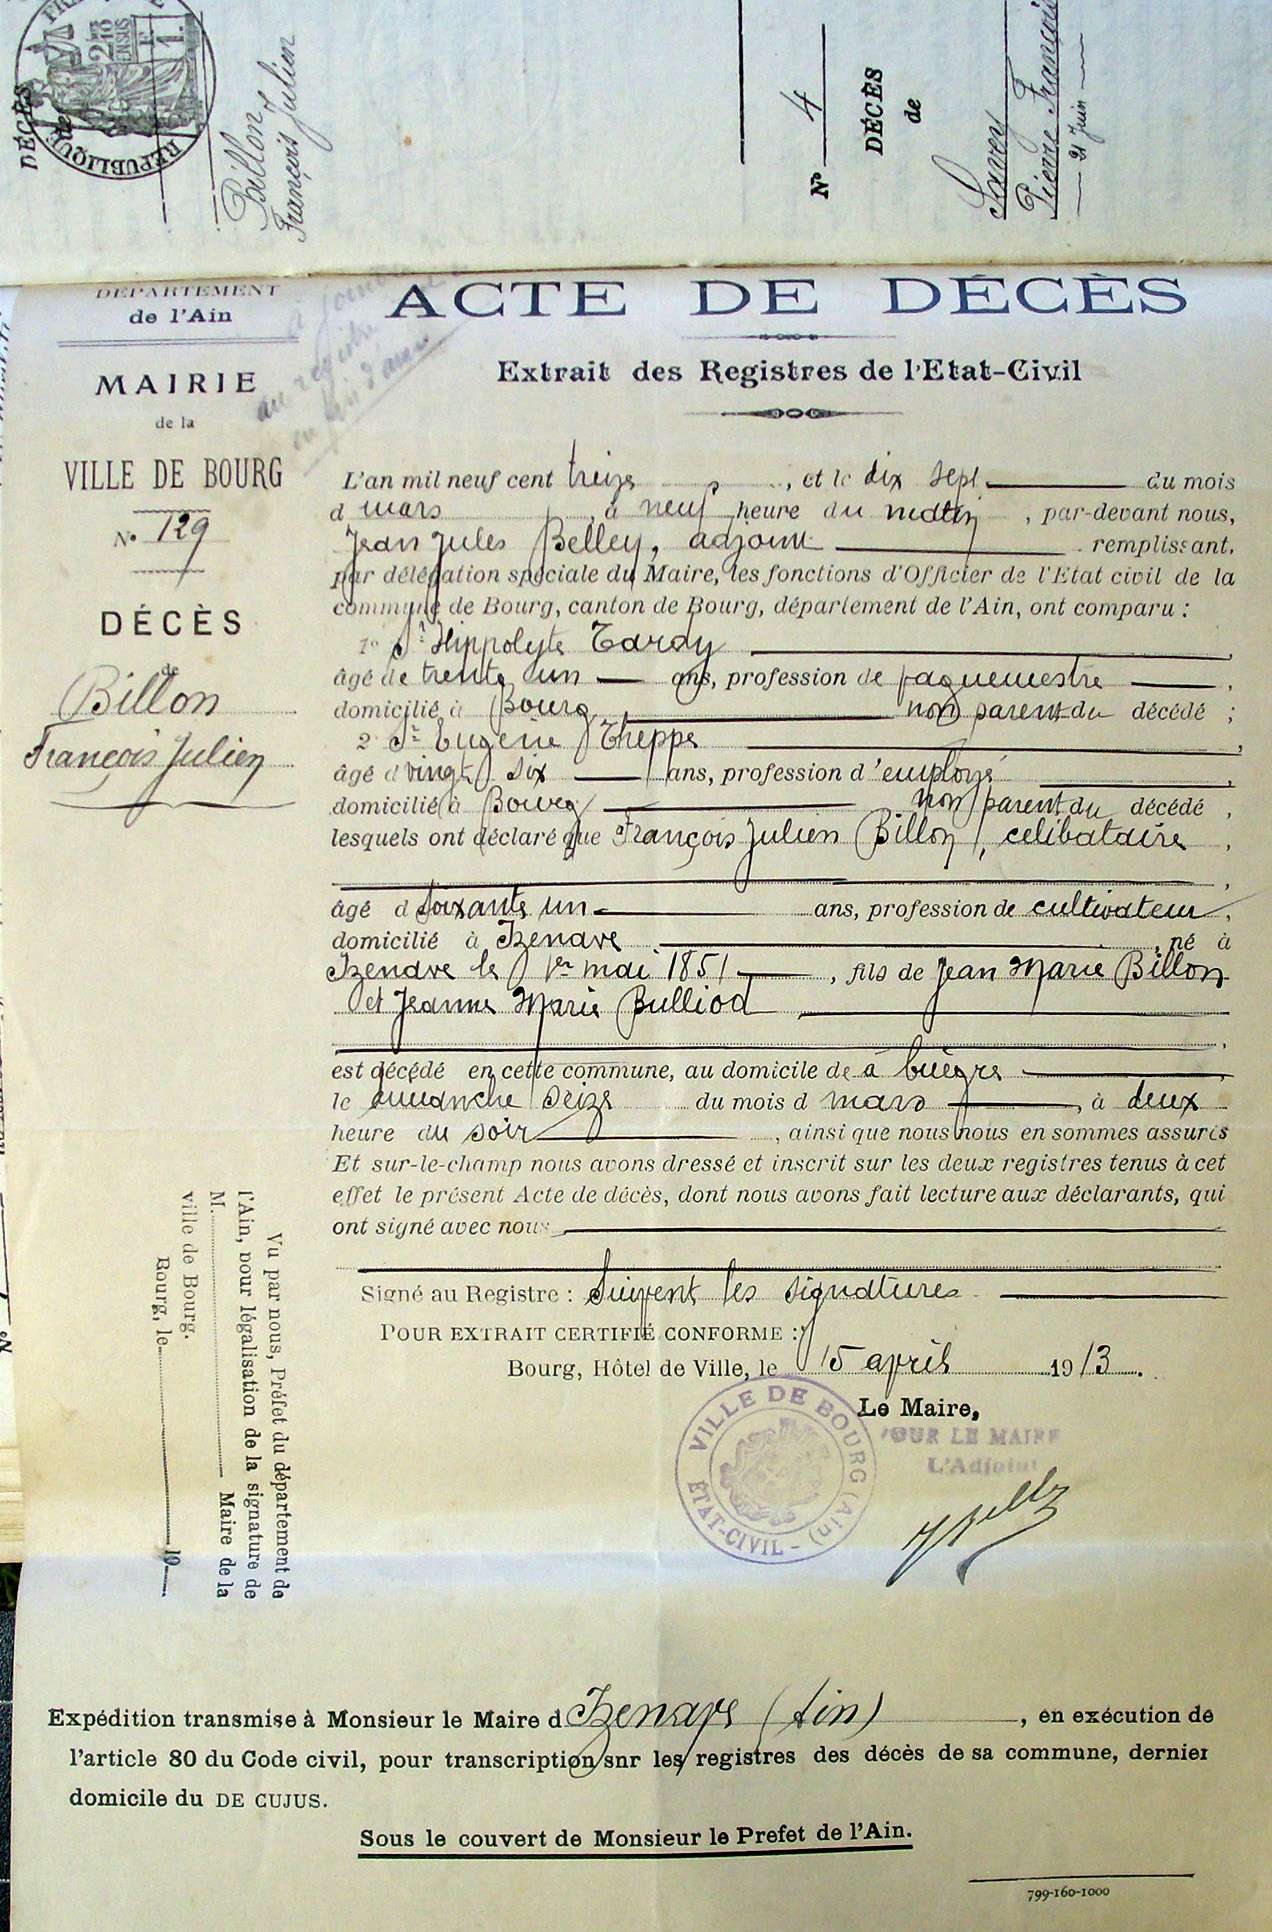 DÉCÈS
de
RÉPUBLIQUE
Billon
François Julien
No 4
DÉCÈS
de
Pierre François
21 Juin
DÉPARTEMENT
de l'Ain
MAIRIE
de la
VILLE DE BOURG
No 129
DÉCÈS
de
Billon
François Julien
au registre
en fin d'année
ACTE DE DÉCÈS
Extrait des Registres de l'Etat-Civil
L'an mil neuf cent treize, et le dix sept du mois
d mars, à neuf heure du matin, par-devant nous,
Jean Jules Belley, adjoint remplissant,
par délégation spéciale du Maire, les fonctions d'Officier de l'Etat civil de la
commune de Bourg, canton de Bourg, département de l'Ain, ont comparu :
1º Sr Hippolyte Tardy,
âgé de trente un ans, profession de vaguemestre,
domicilié à Bourg non parent du décédé ;
2º Sr Eugène Theppe,
âgé d vingt six ans, profession d'employé,
domicilié à Bourg non parent du décédé,
lesquels ont déclaré que François Julien Billon, célibataire,
âgé d soixante un ans, profession de cultivateur,
domicilié à Izenave, né à
Izenave le 1er mai 1851, fils de Jean Marie Billon
et Jeanne Marie Bulliod
est décédé en cette commune, au domicile de à buègre
le dimanche seize du mois d mars, à deux
heure du soir, ainsi que nous nous en sommes assurés
Et sur-le-champ nous avons dressé et inscrit sur les deux registres tenus à cet
effet le présent Acte de décès, dont nous avons fait lecture aux déclarants, qui
ont signé avec nous
Signé au Registre : Suivent les signatures
POUR EXTRAIT CERTIFIÉ CONFORME :
Bourg, Hôtel de Ville, le 15 avril 1913.
Le Maire,
POUR LE MAIRE
L'Adjoint
VILLE DE BOURG (Ain)
ÉTAT-CIVIL
Belley
Vu par nous, Préfet du département de
l'Ain, pour légalisation de la signature de
M. Maire de la
ville de Bourg.
Bourg, le 19
Expédition transmise à Monsieur le Maire d Izenave (Ain), en exécution de
l'article 80 du Code civil, pour transcription snr les registres des décès de sa commune, dernier
domicile du DE CUJUS.
Sous le couvert de Monsieur le Prefet de l'Ain.
799-160-1000